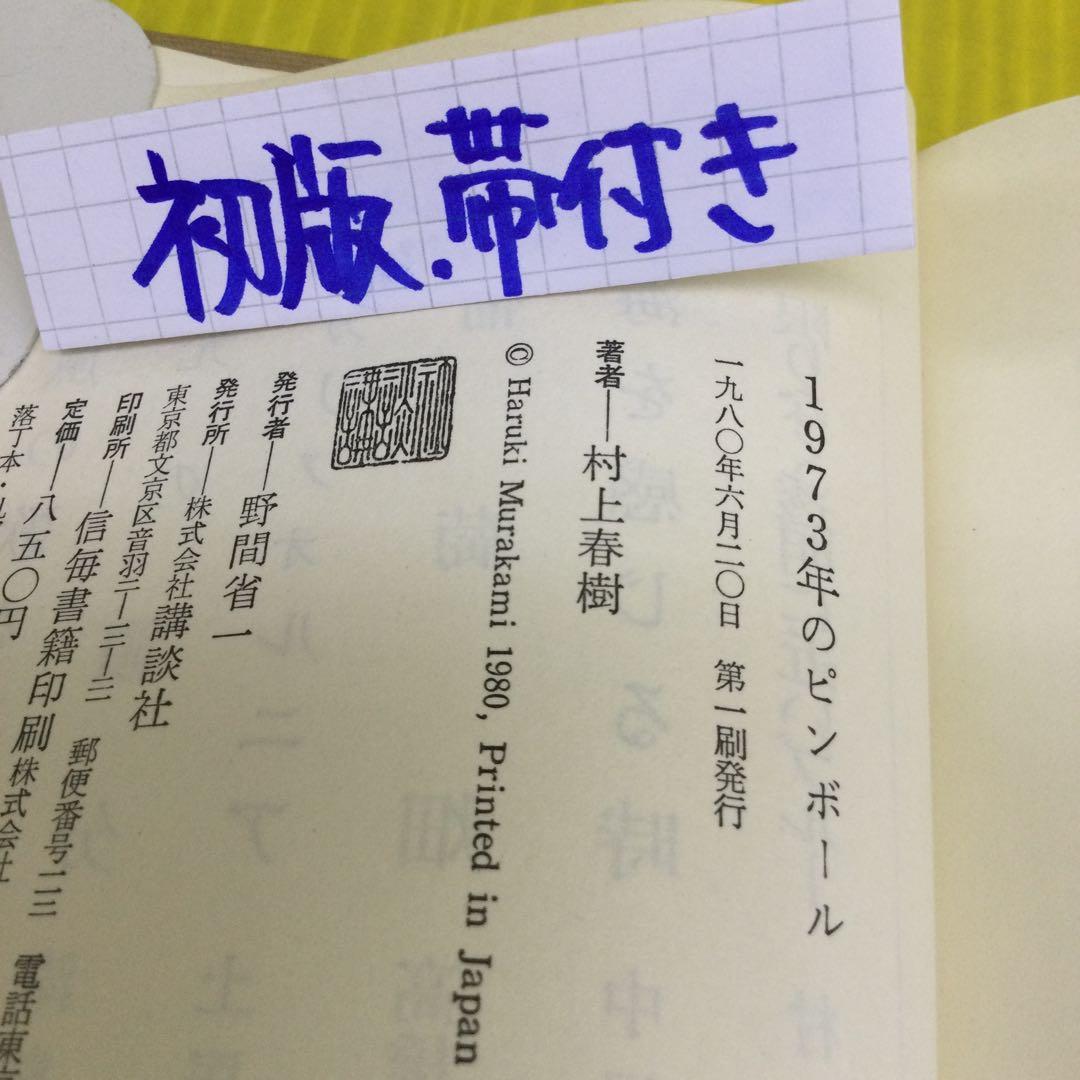 初版.帯付き
1973年のピンボール
一九八〇年六月二〇日 第一刷発行
著者―村上春樹
© Haruki Murakami 1980, Printed in Japan
発行者―野間省一
発行所―株式会社講談社
東京都文京区音羽二―一二―二一 郵便番号一一二 電話東
印刷所―信毎書籍印刷株式会社
定価―八五〇円
落丁本・乱